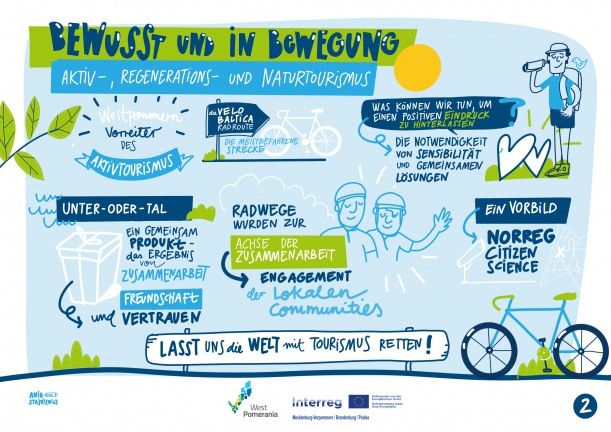 BEWUSST UND IN BEWEGUNG
AKTIV-, REGENERATIONS- UND NATURTOURISMUS
Westpommern
Vorreiter
DES
AKTIVTOURISMUS
die VELO
BALTICA
RADROUTE
DIE MEISTBEFAHRENE
STRECKE
WAS KÖNNEN WIR TUN, UM
EINEN POSITIVEN EINDRUCK
ZU HINTERLASSEN
DIE NOTWENDIGKEIT
VON SENSIBILITÄT
UND GEMEINSAMEN
LÖSUNGEN
UNTER-ODER-TAL
EIN GEMEINSAM
PRODUKT-
das ERGEBNIS
von
ZUSAMMENARBEIT
FREUNDSCHAFT
und VERTRAUEN
RADWEGE
WURDEN ZUR
ACHSE DER
ZUSAMMENARBEIT
ENGAGEMENT
der Lokalen
Communities
EIN VORBILD
NORREG
CITIZEN
SCIENCE
LASST UNS die WELT mit TOURISMUS RETTEN!
West
Pomerania
Interreg
Mecklenburg-Vorpommern | Brandenburg | Polska
2